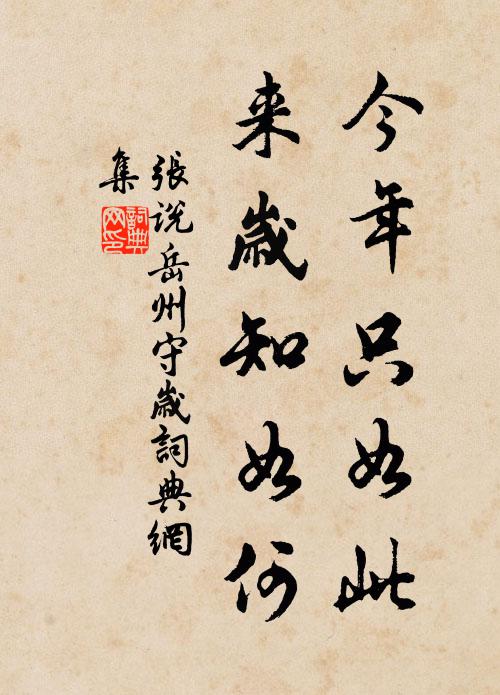 今年只如此
来歲知如何
張説岳州守歲詞典網
集
詞典
网印